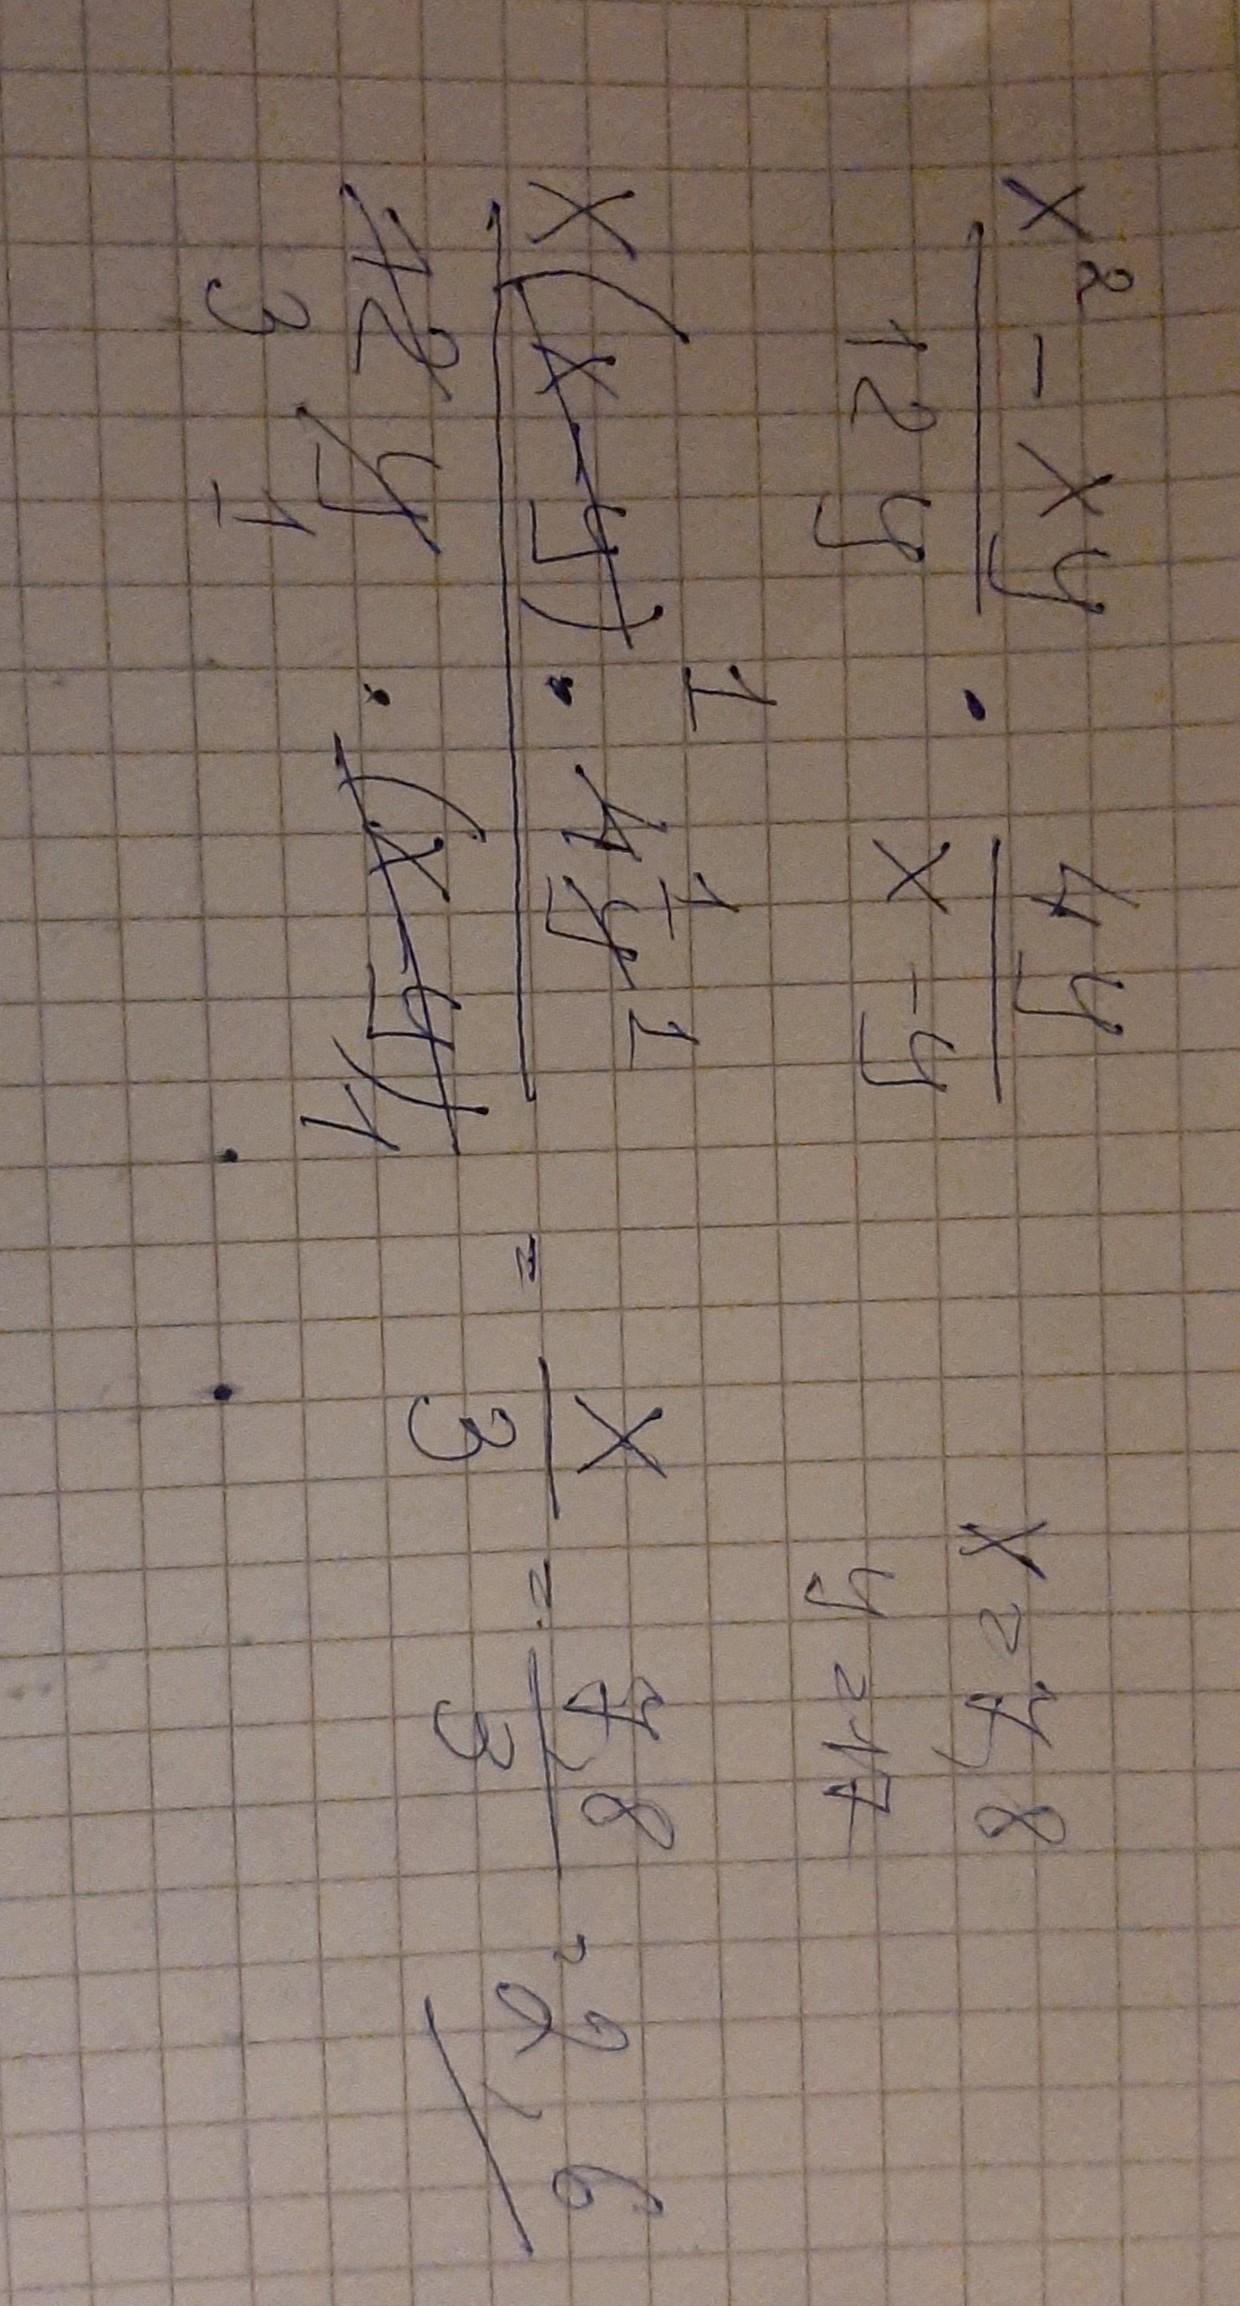 x² - xy / 12y · 4y / x - y   x = 7,8
y = 17
x(x - y) 1 · 4 1 y 1 / 12 3 y 1 · (x - y) 1 = x / 3 = 7,8 / 3 = 2,6